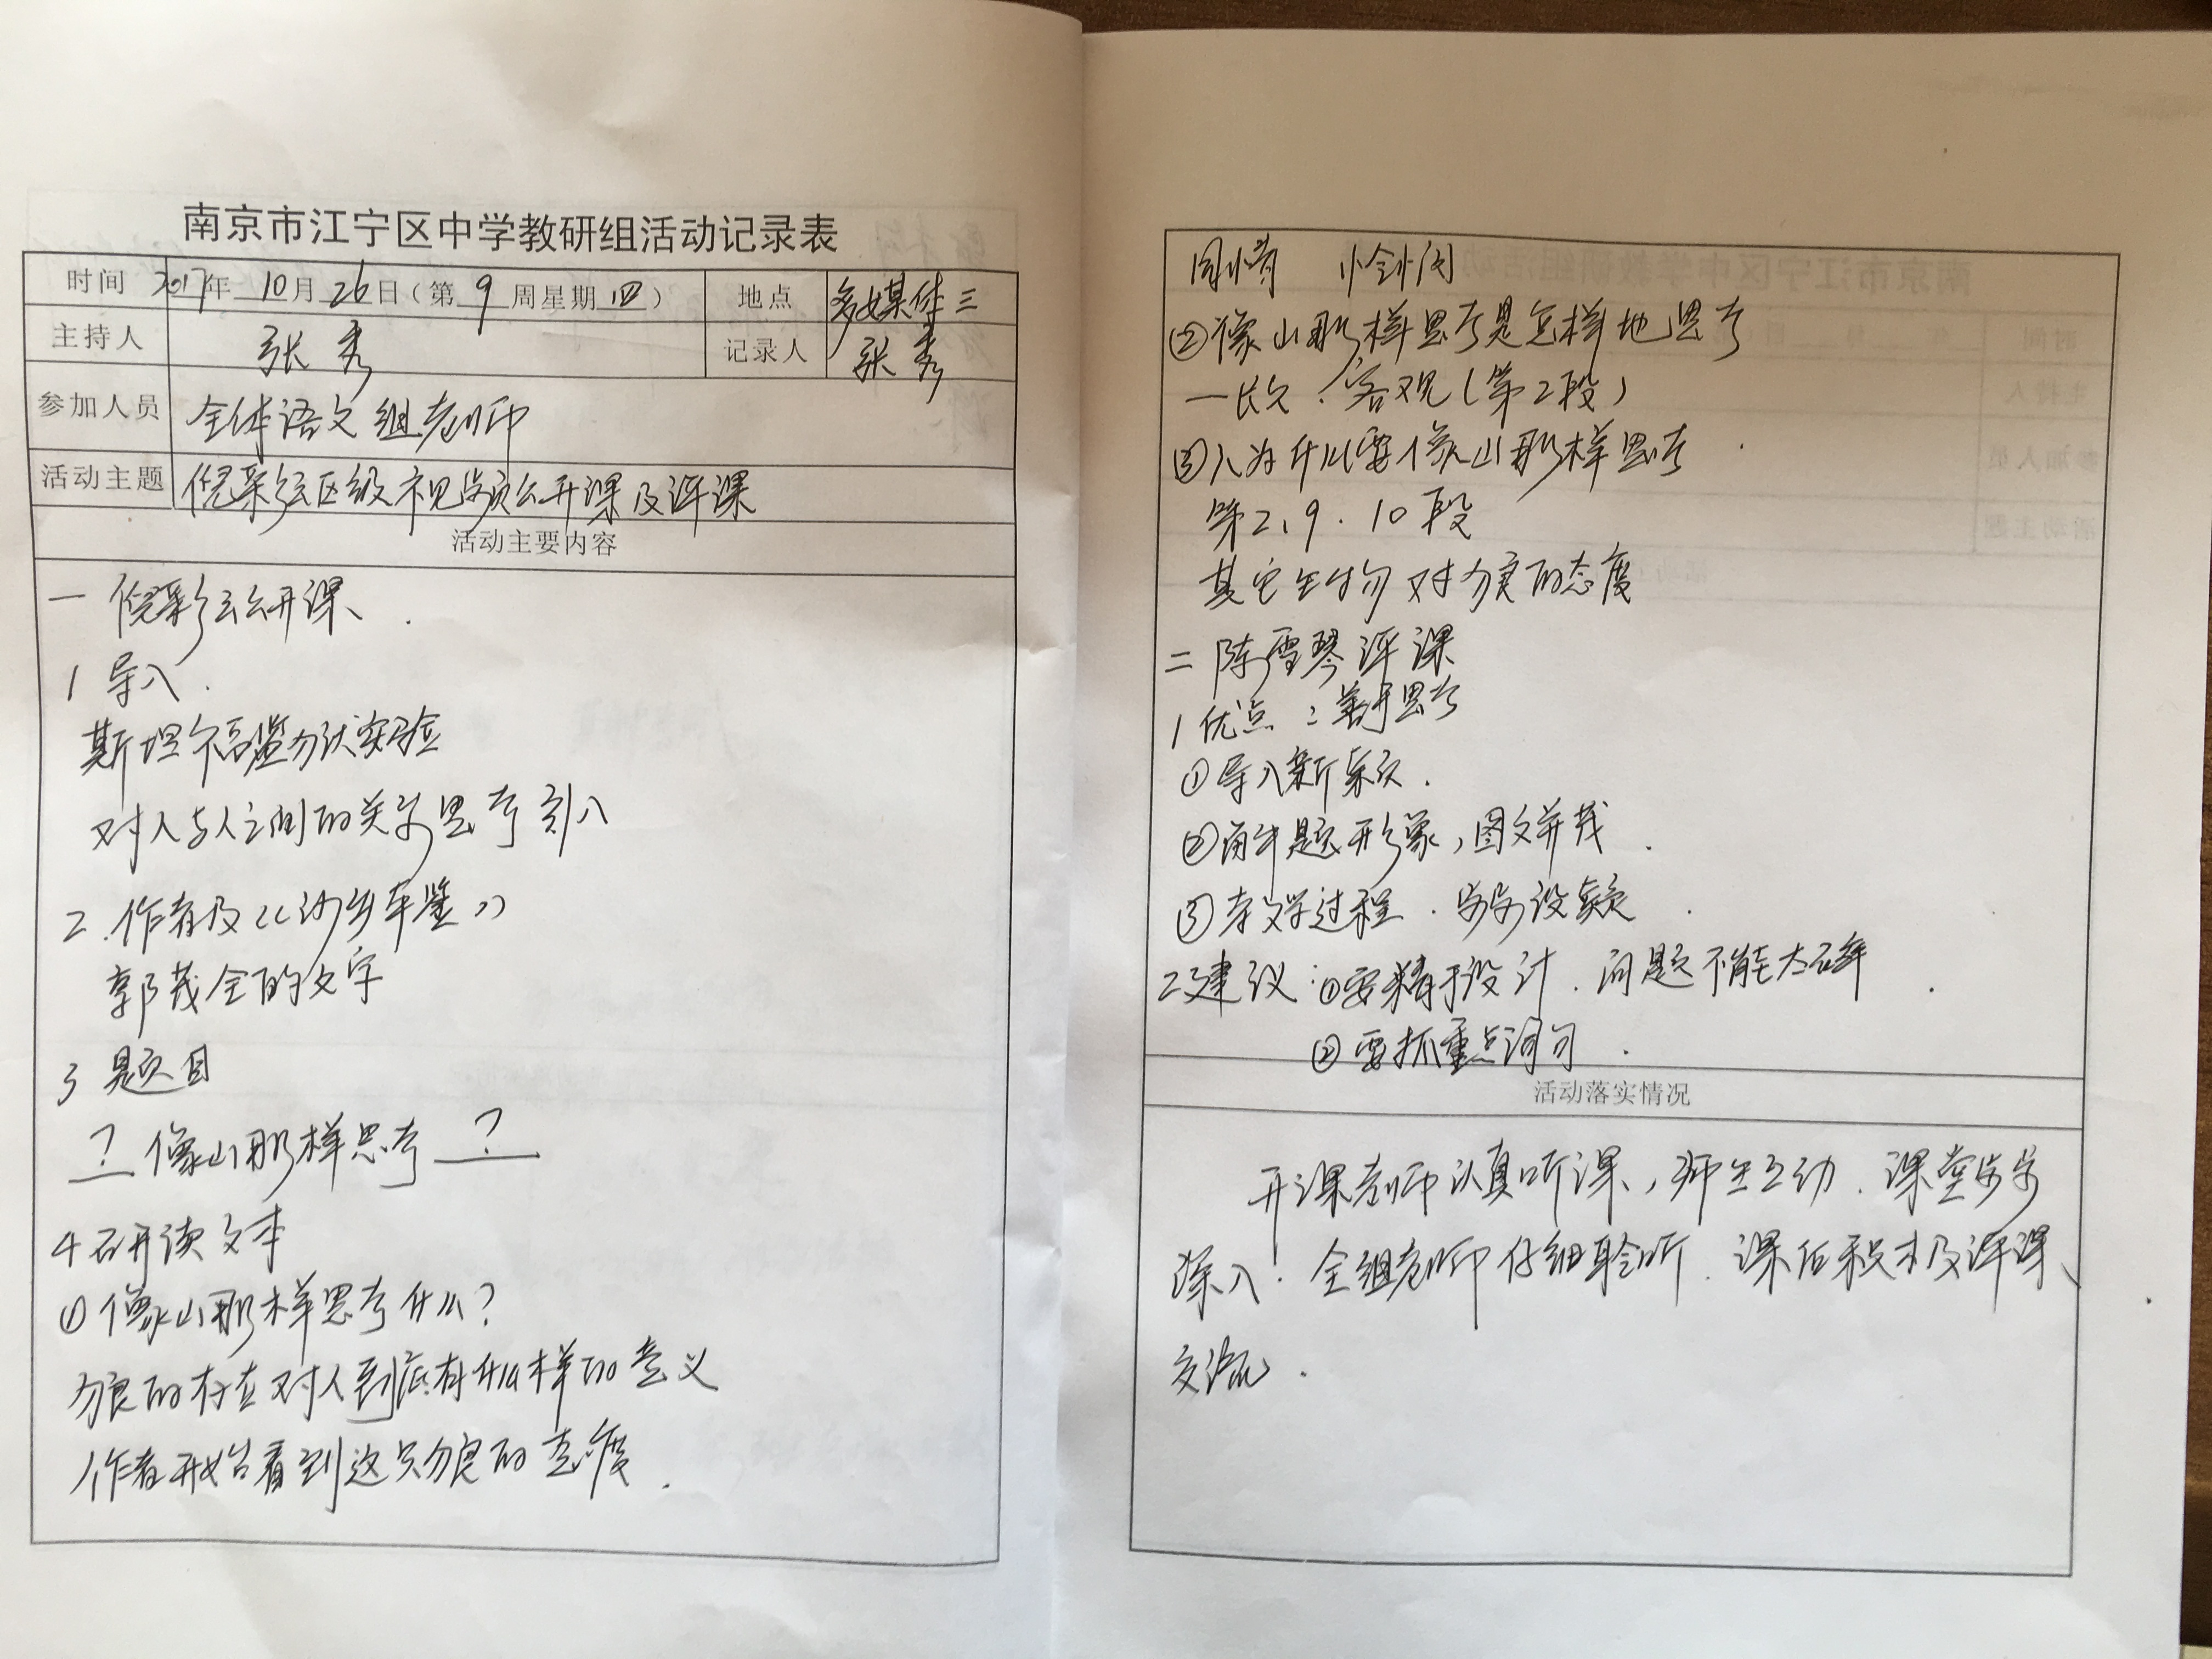 南京市江宁区中学教研组活动记录表
时间 2017年10月26日（第9周星期四） 地点 多媒体三
主持人 张秀 记录人 张秀
参加人员 全体语文组老师
活动主题 倪彩云区级视频公开课及评课
活动主要内容
一 倪彩云公开课、
1 导入.
斯坦福监狱实验
对人与人之间的关系思考引入
2.作者及《沙乡年鉴》
郭茂全的文字
3 题目
？像山那样思考？
4 研读文本
①像山那样思考什么？
狼的存在对人到底有什么样的意义
作者开始看到这只狼的态度.
②像山那样思考是怎样地思考
—长久.客观（第2段）
③人为什么要像山那样思考.
第2、9.10段
其它生物对狼的态度
二 陈雪琴评课
1 优点：善于思考
①导入新颖.
②解题形象，图文并茂.
③教学过程.步步设疑.
2建议：①要精于设计.问题不能太碎.
②要抓重点词句.
活动落实情况
开课老师认真听课，师生互动.课堂步步
深入.全组老师仔细聆听.课后积极及评课、
交流.